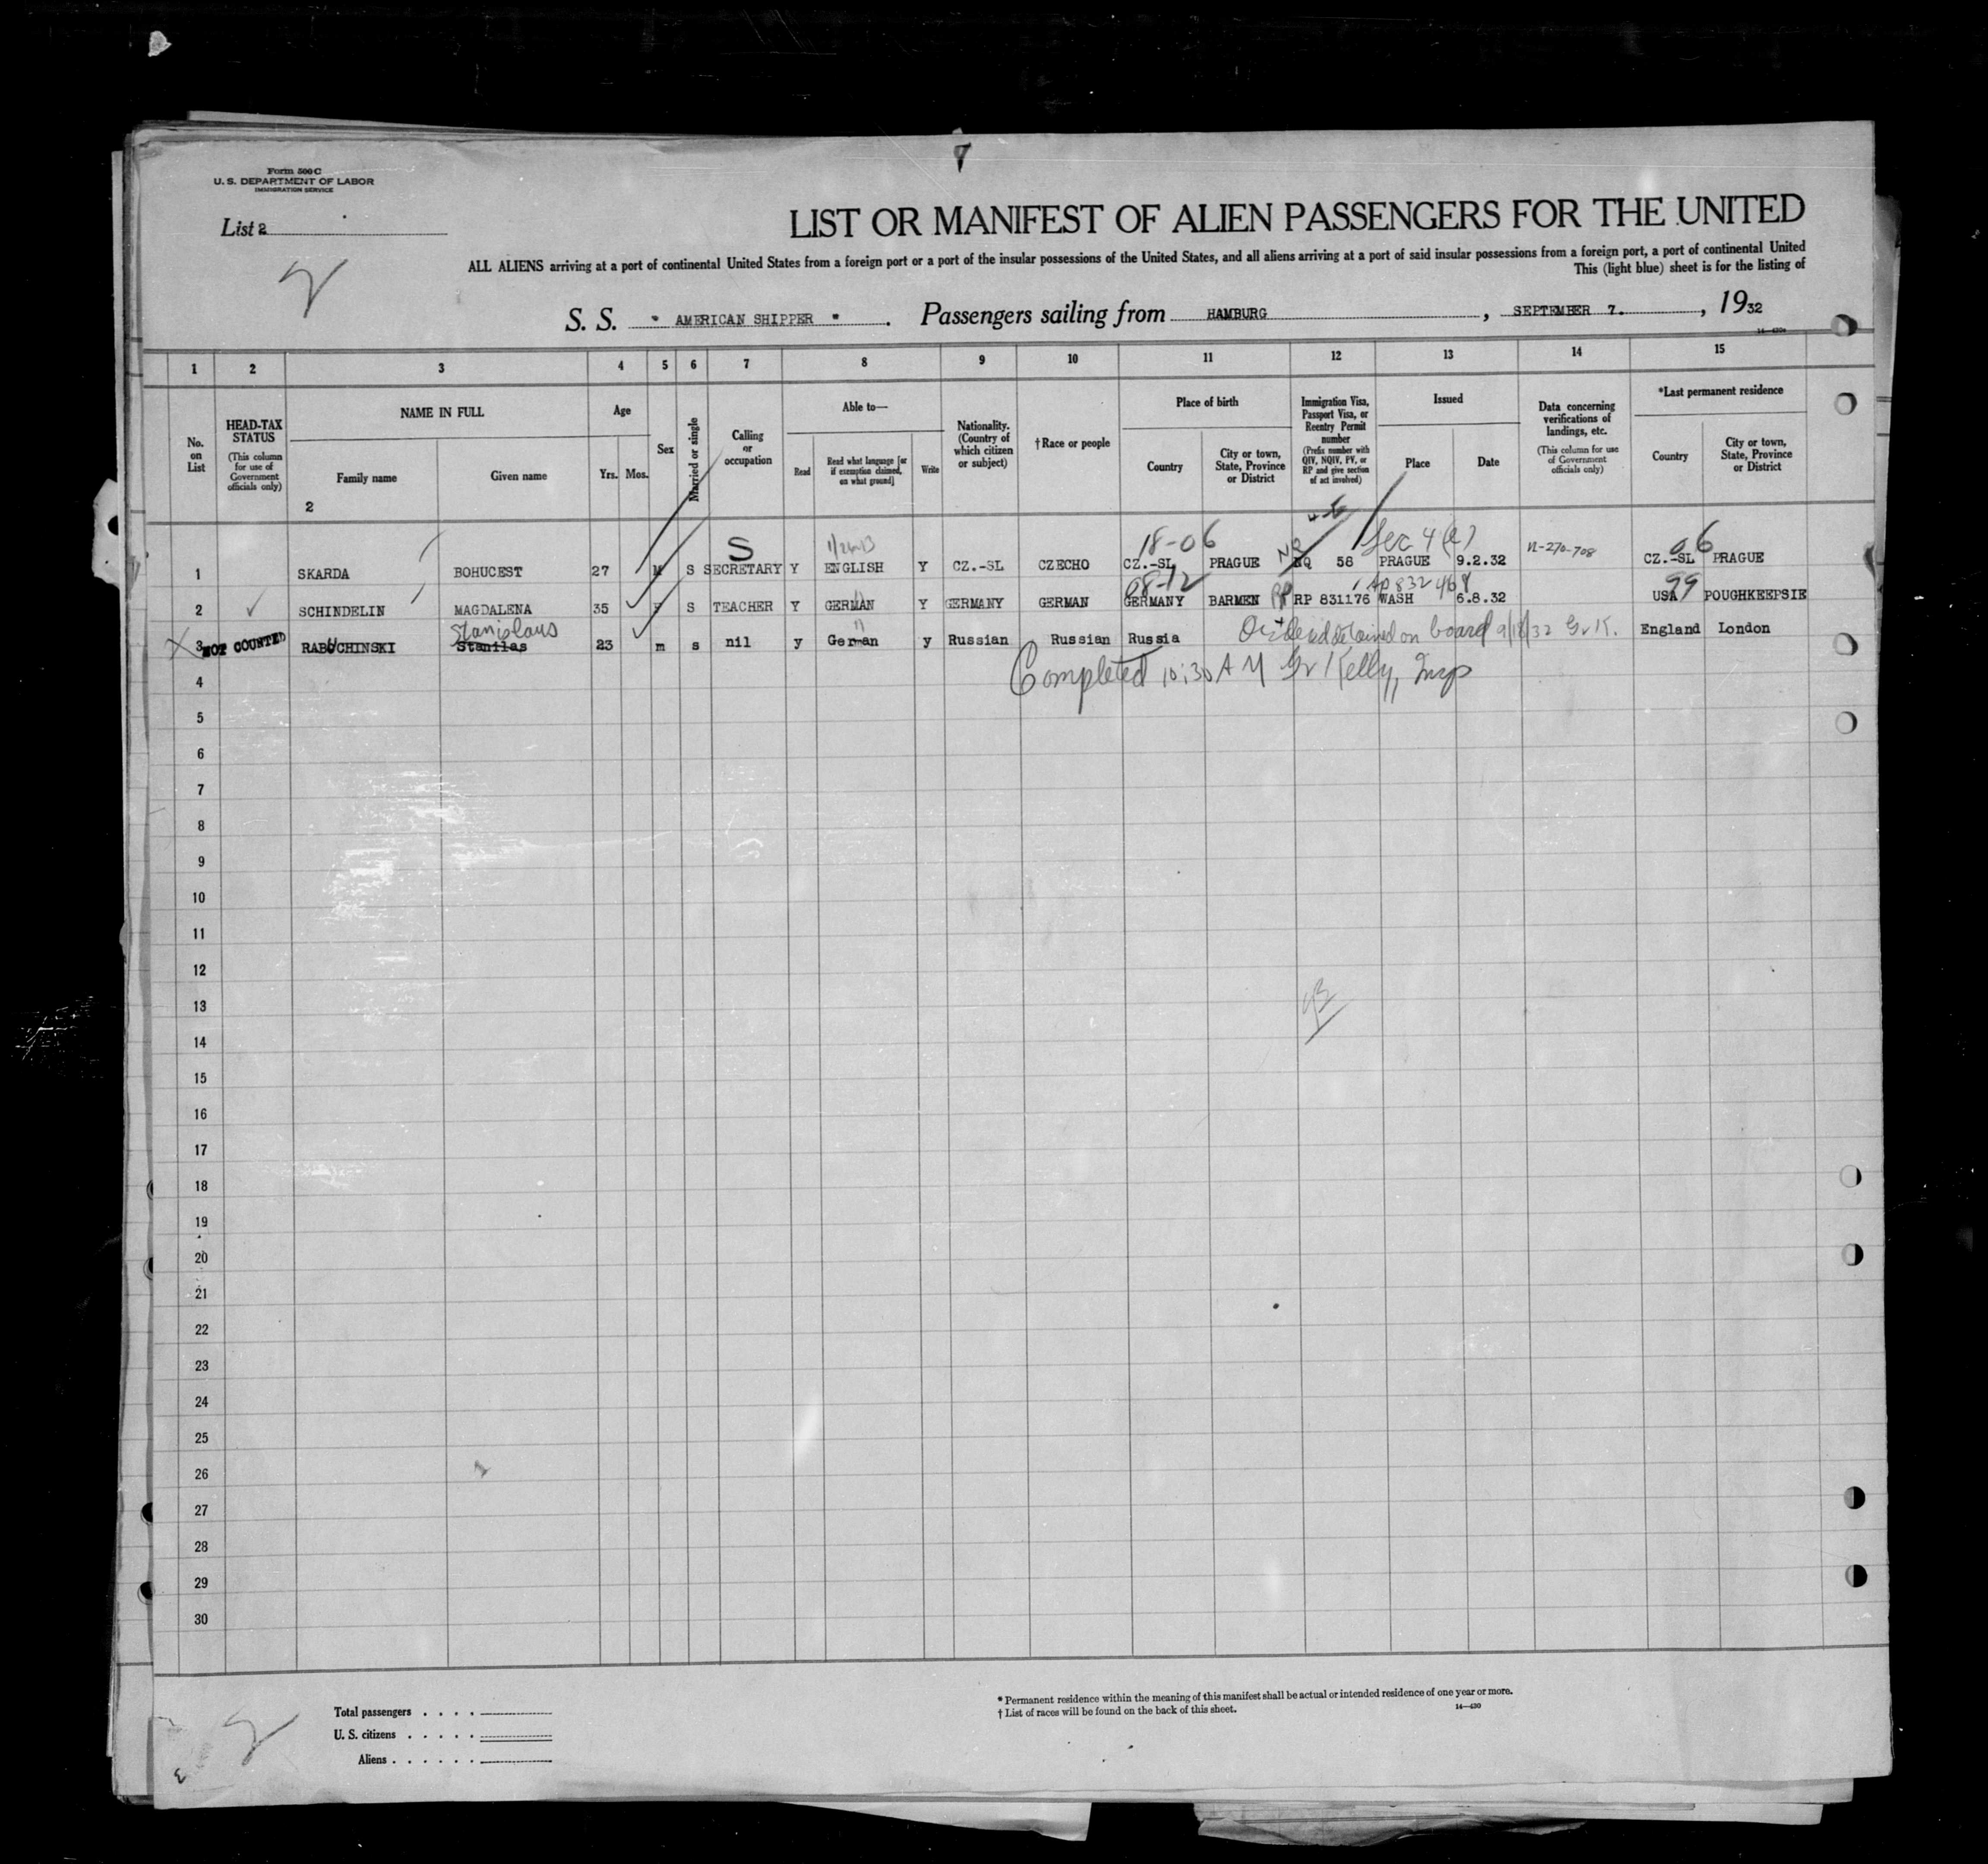 Form 500 C
U. S. DEPARTMENT OF LABOR
IMMIGRATION SERVICE
List 2
2
LIST OR MANIFEST OF ALIEN PASSENGERS FOR THE UNITED
ALL ALIENS arriving at a port of continental United States from a foreign port or a port of the insular possessions of the United States, and all aliens arriving at a port of said insular possessions from a foreign port, a port of continental United
This (light blue) sheet is for the listing of
S. S. " AMERICAN SHIPPER " . Passengers sailing from HAMBURG , SEPTEMBER 7. , 1932
1 2 3 4 5 6 7 8 9 10 11 12 13 14 15
No. on List
HEAD-TAX STATUS (This column for use of Government officials only)
NAME IN FULL
Family name
Given name
2
Age
Yrs. Mos.
Sex
Married or single
Calling or occupation
Able to—
Read
Read what language [or if exemption claimed, on what ground]
Write
Nationality. (Country of which citizen or subject)
†Race or people
Place of birth
Country
City or town, State, Province or District
Immigration Visa, Passport Visa, or Reentry Permit number (Prefix number with QIV, NQIV, PV, or RP and give section of act involved)
Issued
Place
Date
Data concerning verifications of landings, etc. (This column for use of Government officials only)
*Last permanent residence
Country
City or town, State, Province or District
S 18-06 NQ Sec 4(e) 06
1 SKARDA BOHUCEST 27 M S SECRETARY Y ENGLISH Y CZ.-SL CZECHO CZ.-SL PRAGUE NQ 58 PRAGUE 9.2.32 CZ.-SL PRAGUE
08-12 RP 99
2 SCHINDELIN MAGDALENA 35 F S TEACHER Y GERMAN Y GERMANY GERMAN GERMANY BARMEN RP 831176 WASH 6.8.32 USA POUGHKEEPSIE
Stanislaus
3 NOT COUNTED RABUCHINSKI Stanilas 23 m s nil y German y Russian Russian Russia detained on board 9/18/32 England London
Completed 10:30 AM Kelly, Insp
4
5
6
7
8
9
10
11
12
13
14
15
16
17
18
19
20
21
22
23
24
25
26
27
28
29
30
2
Total passengers . . . .
U. S. citizens . . . . .
Aliens . . . . . .
* Permanent residence within the meaning of this manifest shall be actual or intended residence of one year or more.
† List of races will be found on the back of this sheet.
14—430